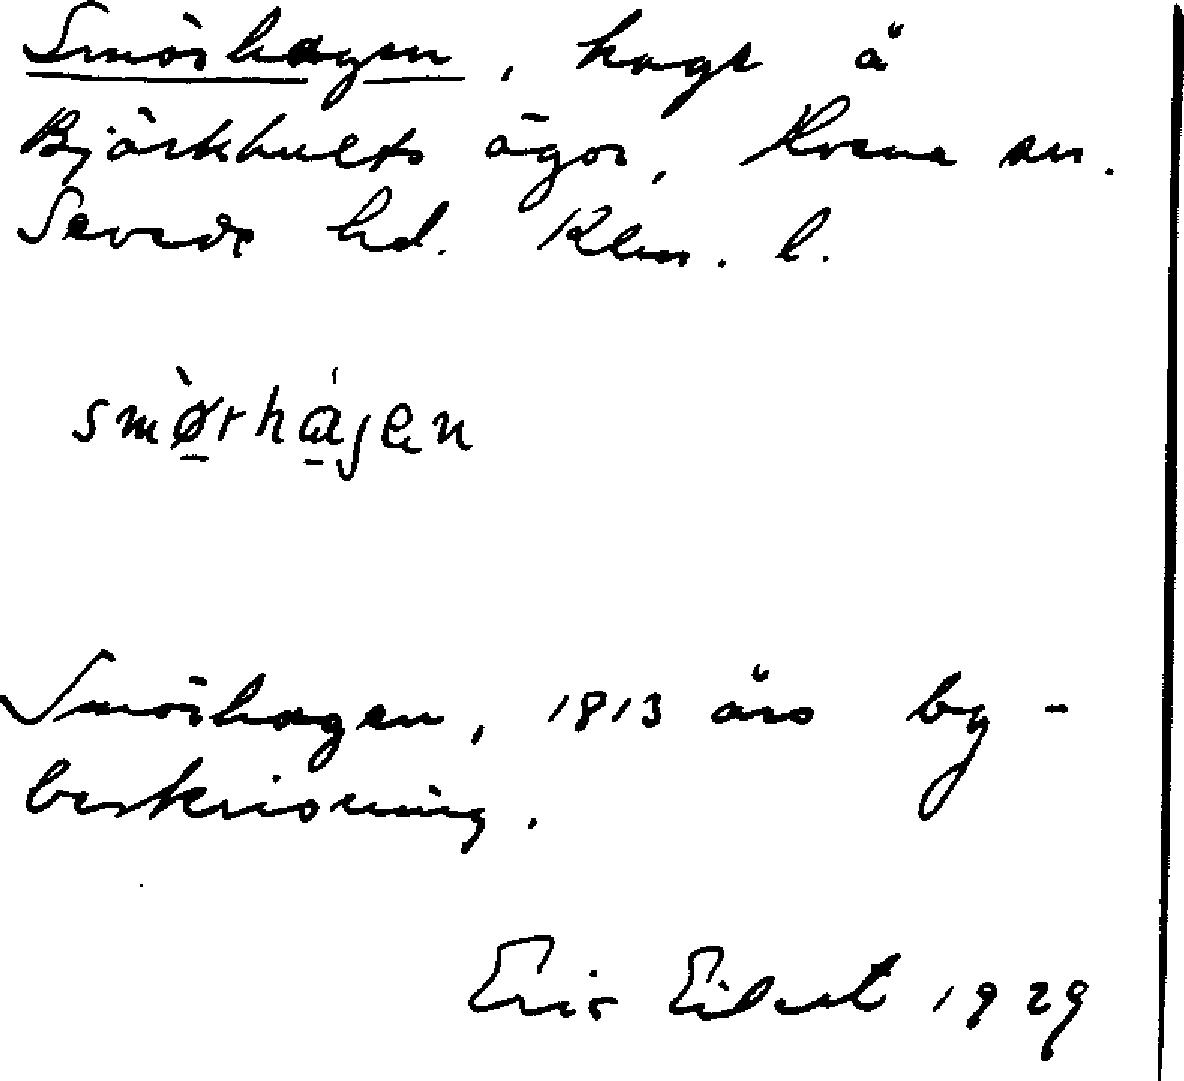 Smörhagen, hage å
Björkhults ägor, sn.
Sevede hd. Klm. l.
smø̀rhájen
Smörhagen, 1813 års by-
beskrivning.
Eric 1929